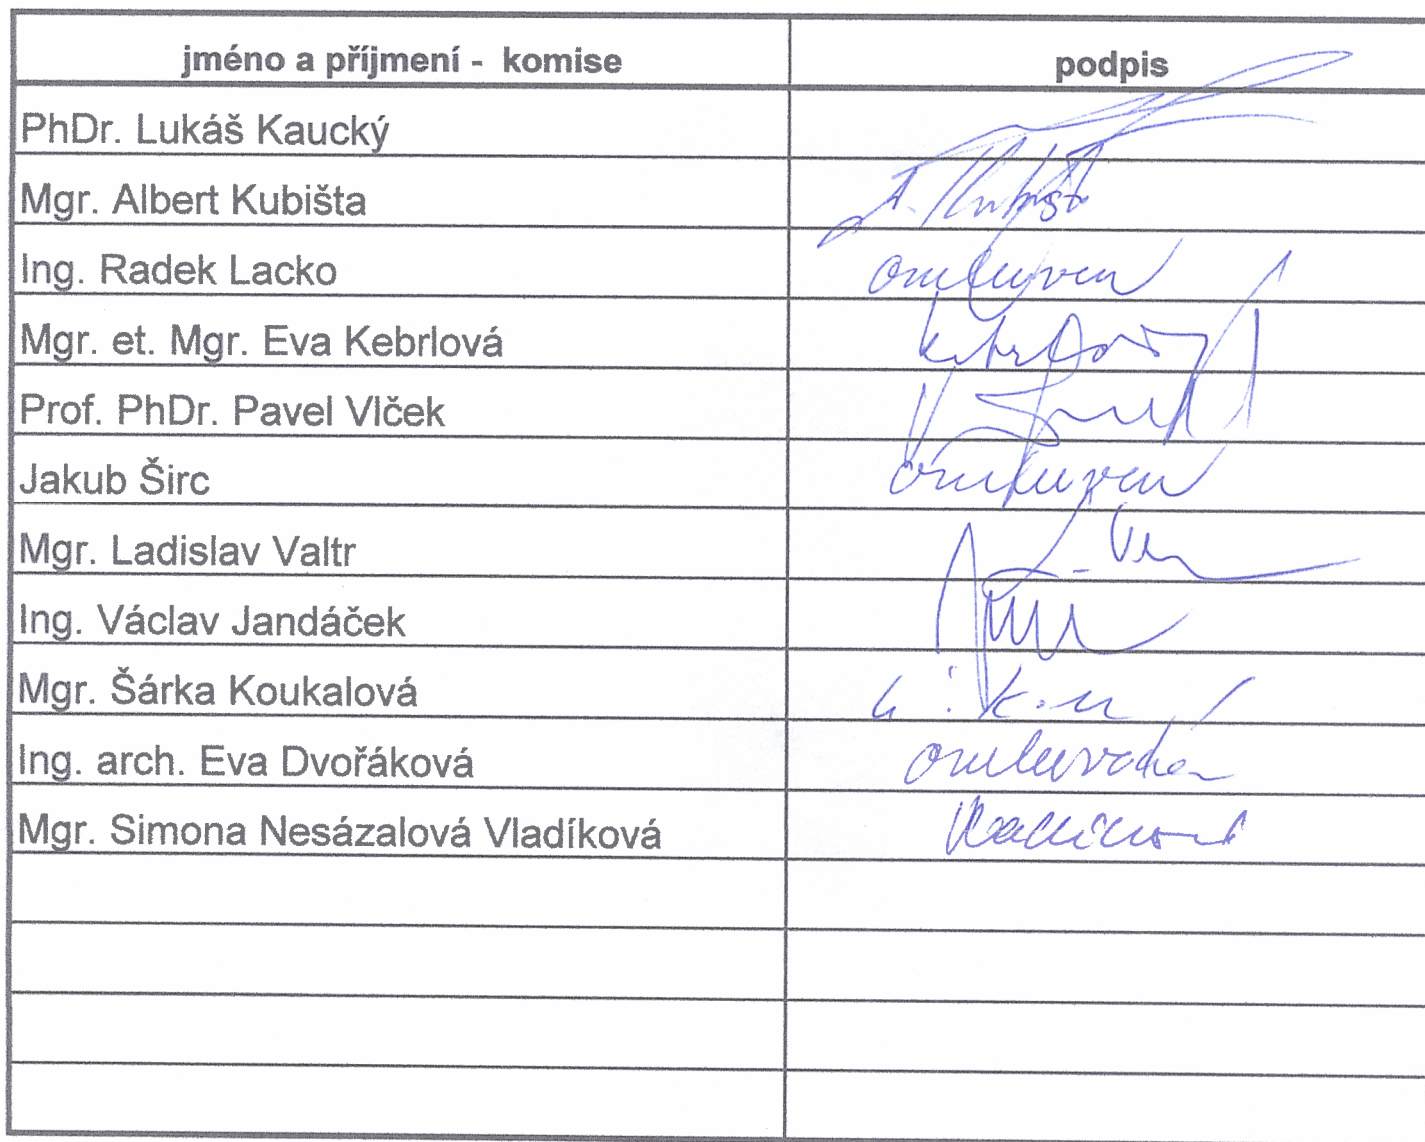 jméno a příjmení - komise podpis
PhDr. Lukáš Kaucký
Mgr. Albert Kubišta A. Kubišta
Ing. Radek Lacko omluven
Mgr. et. Mgr. Eva Kebrlová Kebrlová
Prof. PhDr. Pavel Vlček
Jakub Širc omluven
Mgr. Ladislav Valtr
Ing. Václav Jandáček
Mgr. Šárka Koukalová
Ing. arch. Eva Dvořáková omluvena
Mgr. Simona Nesázalová Vladíková